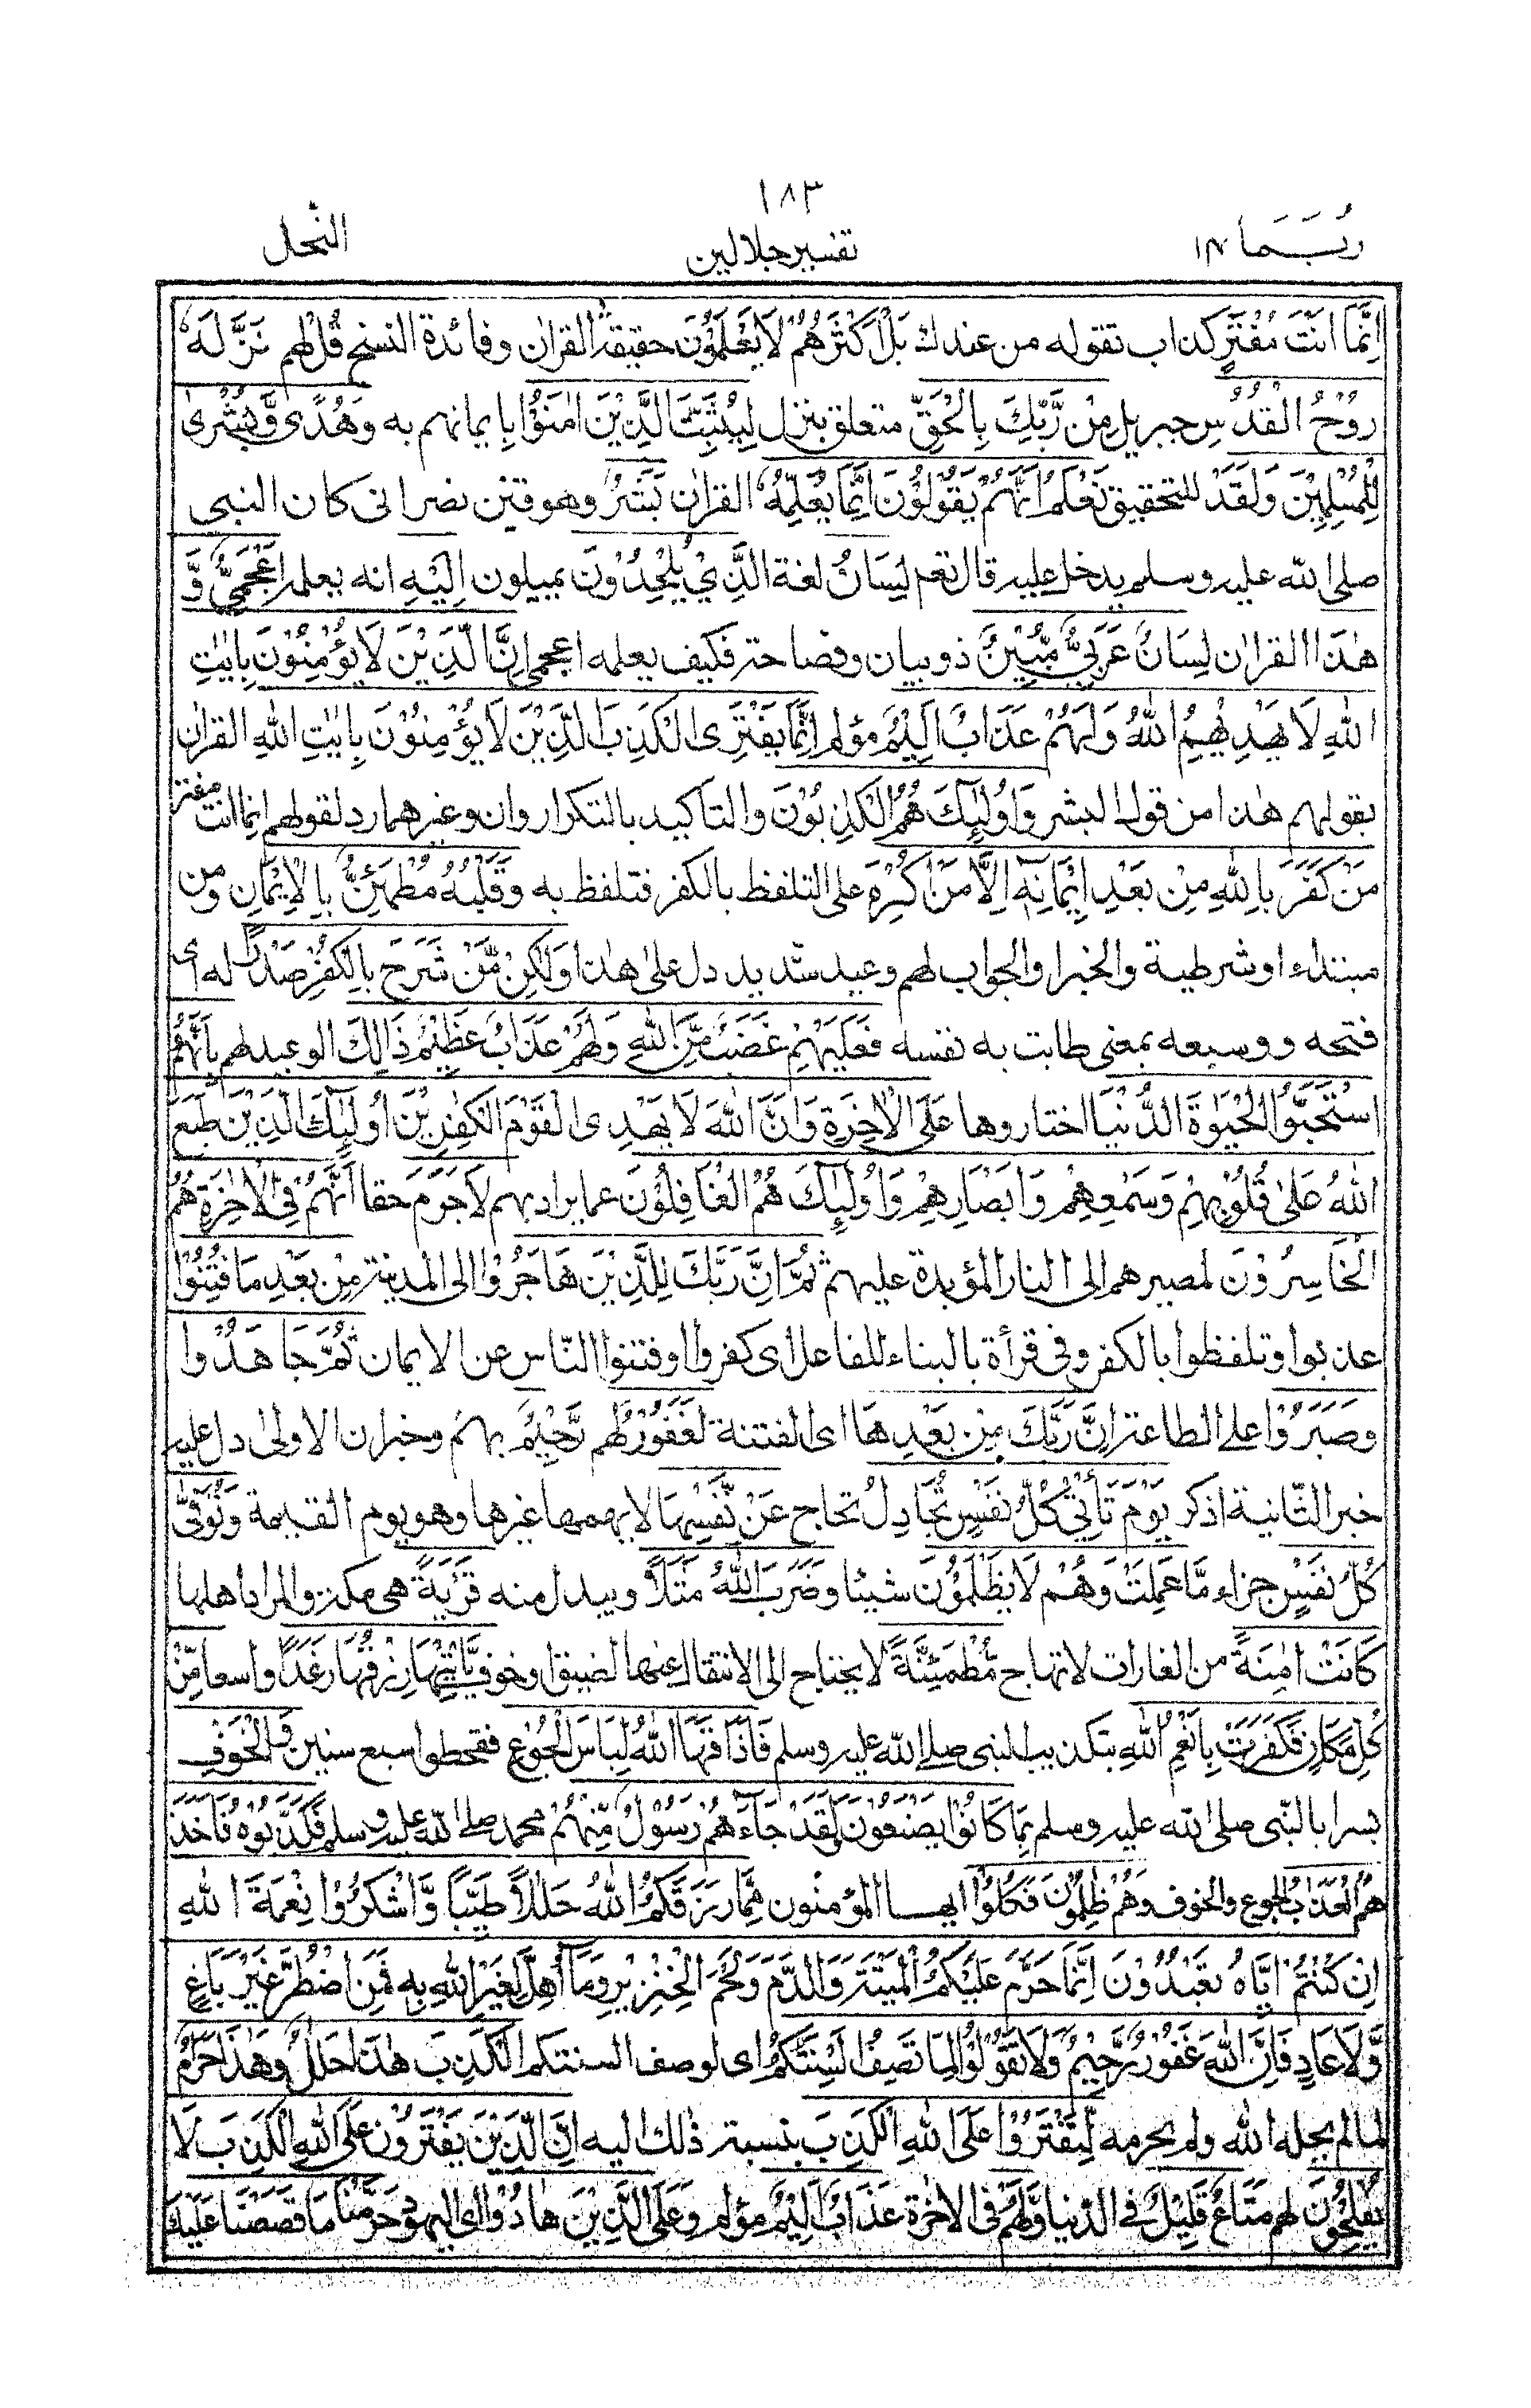 ١٨٣
رُبَمَا ١٤
تفسير جلالين
النحل
اِنَّمَا اَنْتَ مُفْتَرٍ كذاب تقوله من عندك بَلْ اَكْثَرُهُمْ لَا يَعْلَمُوْنَ حقيقة القراٰن وفائدة النسخ قُلْ لهم نَزَّلَهٗ
رُوْحُ الْقُدُسِ جبريل مِنْ رَّبِّكَ بِالْحَقِّ متعلق بنزل لِيُثَبِّتَ الَّذِيْنَ اٰمَنُوْا بايمانهم به وَهُدًى وَّبُشْرٰى
لِلْمُسْلِمِيْنَ وَلَقَدْ للتحقيق نَعْلَمُ اَنَّهُمْ يَقُوْلُوْنَ اِنَّمَا يُعَلِّمُهٗ القراٰن بَشَرٌ وهو قين نصرانى كان النبى
صلى الله عليه وسلم يدخل عليه قال تعم لِسَانُ لغة الَّذِيْ يُلْحِدُوْنَ يميلون اِلَيْهِ انه يعلمه اَعْجَمِيٌّ وَّ
هٰذَا القراٰن لِسَانٌ عَرَبِيٌّ مُّبِيْنٌ ذو بيان وفصاحة فكيف يعلمه اعجمى اِنَّ الَّذِيْنَ لَا يُؤْمِنُوْنَ بِاٰيٰتِ
اللهِ لَا يَهْدِيْهِمُ اللهُ وَلَهُمْ عَذَابٌ اَلِيْمٌ مؤلم اِنَّمَا يَفْتَرِى الْكَذِبَ الَّذِيْنَ لَا يُؤْمِنُوْنَ بِاٰيٰتِ اللهِ القراٰن
بقولهم هٰذا من قول البشر وَاُولٰٓئِكَ هُمُ الْكٰذِبُوْنَ والتاكيد بالتكرار وان وغيرهما رد لقولهم انما انت مفتر
مَنْ كَفَرَ بِاللهِ مِنْ بَعْدِ اِيْمَانِهٖٓ اِلَّا مَنْ اُكْرِهَ على التلفظ بالكفر فتلفظ به وَقَلْبُهٗ مُطْمَئِنٌّ بِالْاِيْمَانِ ومن
مبتداء او شرطية والخبر او الجواب لهم وعيد شديد دل على هٰذا وَلٰكِنْ مَّنْ شَرَحَ بِالْكُفْرِ صَدْرًا له اى
فتحه ووسعه بمعنى طابت به نفسه فَعَلَيْهِمْ غَضَبٌ مِّنَ اللهِ وَلَهُمْ عَذَابٌ عَظِيْمٌ ذَالِكَ الوعيد لهم بِاَنَّهُمُ
اسْتَحَبُّوا الْحَيٰوةَ الدُّنْيَا اختاروها عَلَى الْاٰخِرَةِ وَاَنَّ اللهَ لَا يَهْدِى الْقَوْمَ الْكٰفِرِيْنَ اُولٰٓئِكَ الَّذِيْنَ طَبَعَ
اللهُ عَلٰى قُلُوْبِهِمْ وَسَمْعِهِمْ وَاَبْصَارِهِمْ وَاُولٰٓئِكَ هُمُ الْغَافِلُوْنَ عما يراد بهم لَاجَرَمَ حقا اَنَّهُمْ فِى الْاٰخِرَةِ هُمُ
الْخَاسِرُوْنَ لمصيرهم الى النار المؤبدة عليهم ثُمَّ اِنَّ رَبَّكَ لِلَّذِيْنَ هَاجَرُوْا الى المدينة مِنْ بَعْدِ مَا فُتِنُوْا
عذبوا وتلفظوا بالكفر وفى قرأة بالبناء للفاعل اى كفروا او فتنوا النّاس عن الايمان ثُمَّ جَاهَدُوْا
وَصَبَرُوْا على الطاعة اِنَّ رَبَّكَ مِنْ بَعْدِهَا اى الفتنة لَغَفُوْرٌ لهم رَّحِيْمٌ بهم وخبران الاولى دل عليه
خبر الثّانية اذكر يَوْمَ تَأْتِيْ كُلُّ نَفْسٍ تُجَادِلُ تحاج عَنْ نَّفْسِهَا لا يهمها غيرها وهو يوم القيٰمة وَتُوَفّٰى
كُلُّ نَفْسٍ جزاء مَّا عَمِلَتْ وَهُمْ لَا يُظْلَمُوْنَ شيئا وَضَرَبَ اللهُ مَثَلًا ويبدل منه قَرْيَةً هى مكة والمراد اهلها
كَانَتْ اٰمِنَةً من الغارات لا تهاج مُّطْمَئِنَّةً لا يحتاج الى الانتقال عنها لضيق او خوف يَّاْتِيْهَا رِزْقُهَا رَغَدًا واسعا مِّنْ
كُلِّ مَكَانٍ فَكَفَرَتْ بِاَنْعُمِ اللهِ بتكذيب النبى صلى الله عليه وسلم فَاَذَاقَهَا اللهُ لِبَاسَ الْجُوْعِ فقحطوا سبع سنين وَالْخَوْفِ
بسرايا النّبى صلى الله عليه وسلم بِمَا كَانُوْا يَصْنَعُوْنَ وَلَقَدْ جَآءَهُمْ رَسُوْلٌ مِّنْهُمْ محمد صلى الله عليه وسلم فَكَذَّبُوْهُ فَاَخَذَ
هُمُ الْعَذَابُ الجوع والخوف وَهُمْ ظٰلِمُوْنَ فَكُلُوْا ايها المؤمنون مِمَّا رَزَقَكُمُ اللهُ حَلٰلًا طَيِّبًا وَّاشْكُرُوْا نِعْمَةَ اللهِ
اِنْ كُنْتُمْ اِيَّاهُ تَعْبُدُوْنَ اِنَّمَا حَرَّمَ عَلَيْكُمُ الْمَيْتَةَ وَالدَّمَ وَلَحْمَ الْخِنْزِيْرِ وَمَآ اُهِلَّ لِغَيْرِ اللهِ بِهٖ فَمَنِ اضْطُرَّ غَيْرَ بَاغٍ
وَّلَا عَادٍ فَاِنَّ اللهَ غَفُوْرٌ رَّحِيْمٌ وَلَا تَقُوْلُوْا لِمَا تَصِفُ اَلْسِنَتُكُمُ اى لوصف السنتكم الْكَذِبَ هٰذَا حَلٰلٌ وَّهٰذَا حَرَامٌ
لما لم يحله الله ولم يحرمه لِّتَفْتَرُوْا عَلَى اللهِ الْكَذِبَ بنسبة ذٰلك اليه اِنَّ الَّذِيْنَ يَفْتَرُوْنَ عَلَى اللهِ الْكَذِبَ لَا
يُفْلِحُوْنَ لهم مَتَاعٌ قَلِيْلٌ فى الدّنيا وَّلَهُمْ فى الاٰخرة عَذَابٌ اَلِيْمٌ مؤلم وَعَلَى الَّذِيْنَ هَادُوْا اى اليهود حَرَّمْنَا مَا قَصَصْنَا عَلَيْكَ